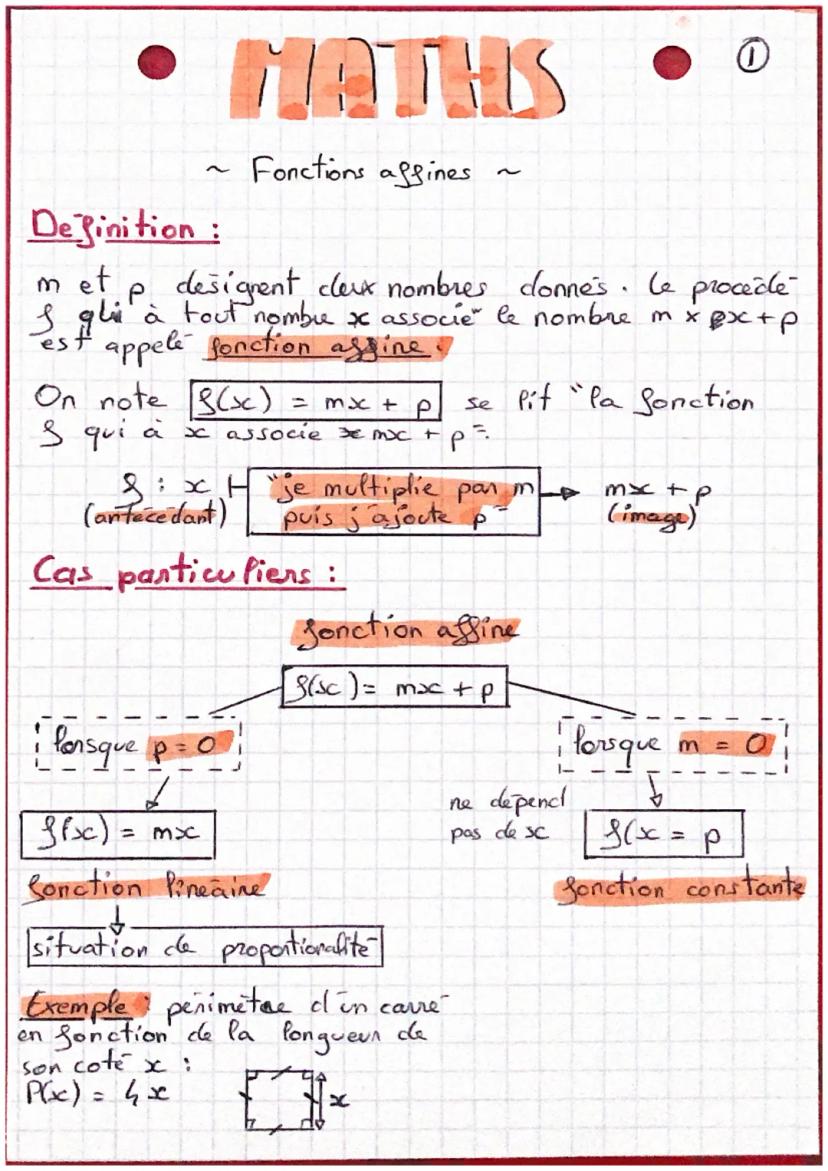 MATHS
1
~ Fonctions affines ~
Définition :
m et p désignent deux nombres donnés. Le procédé
f qui à tout nombre x associé le nombre m × x + p
est appelé fonction affine.
On note f(x) = mx + p se lit "la fonction
f qui à x associe mx + p".
f : x "je multiplie par m mx + p
(antécédant) puis j'ajoute p" (image)
Cas particuliers :
fonction affine
f(x) = mx + p
lorsque p = 0 lorsque m = 0
ne dépend
pas de x
f(x) = mx f(x = p
fonction linéaire fonction constante
situation de proportionalité
Exemple : périmètre d'un carré
en fonction de la longueur de
son coté x :
P(x) = 4x
x